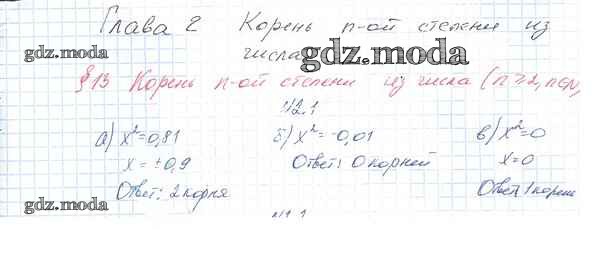 Глава 2 Корень n-ой степени из
числа
gdz.moda
gdz.moda
§ 13 Корень n-ой степени из числа (n≥2, n∈N,
12.1
а) x²=0,81 б) x²=-0,01 в) x²=0
x=±0,9 Ответ: 0 корней x=0
Ответ: 2 корня Ответ: 1 корень
gdz.moda